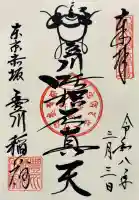 奉拝
豊川吒枳尼真天
令和八年
三月三日
東京赤坂
豊川稲荷